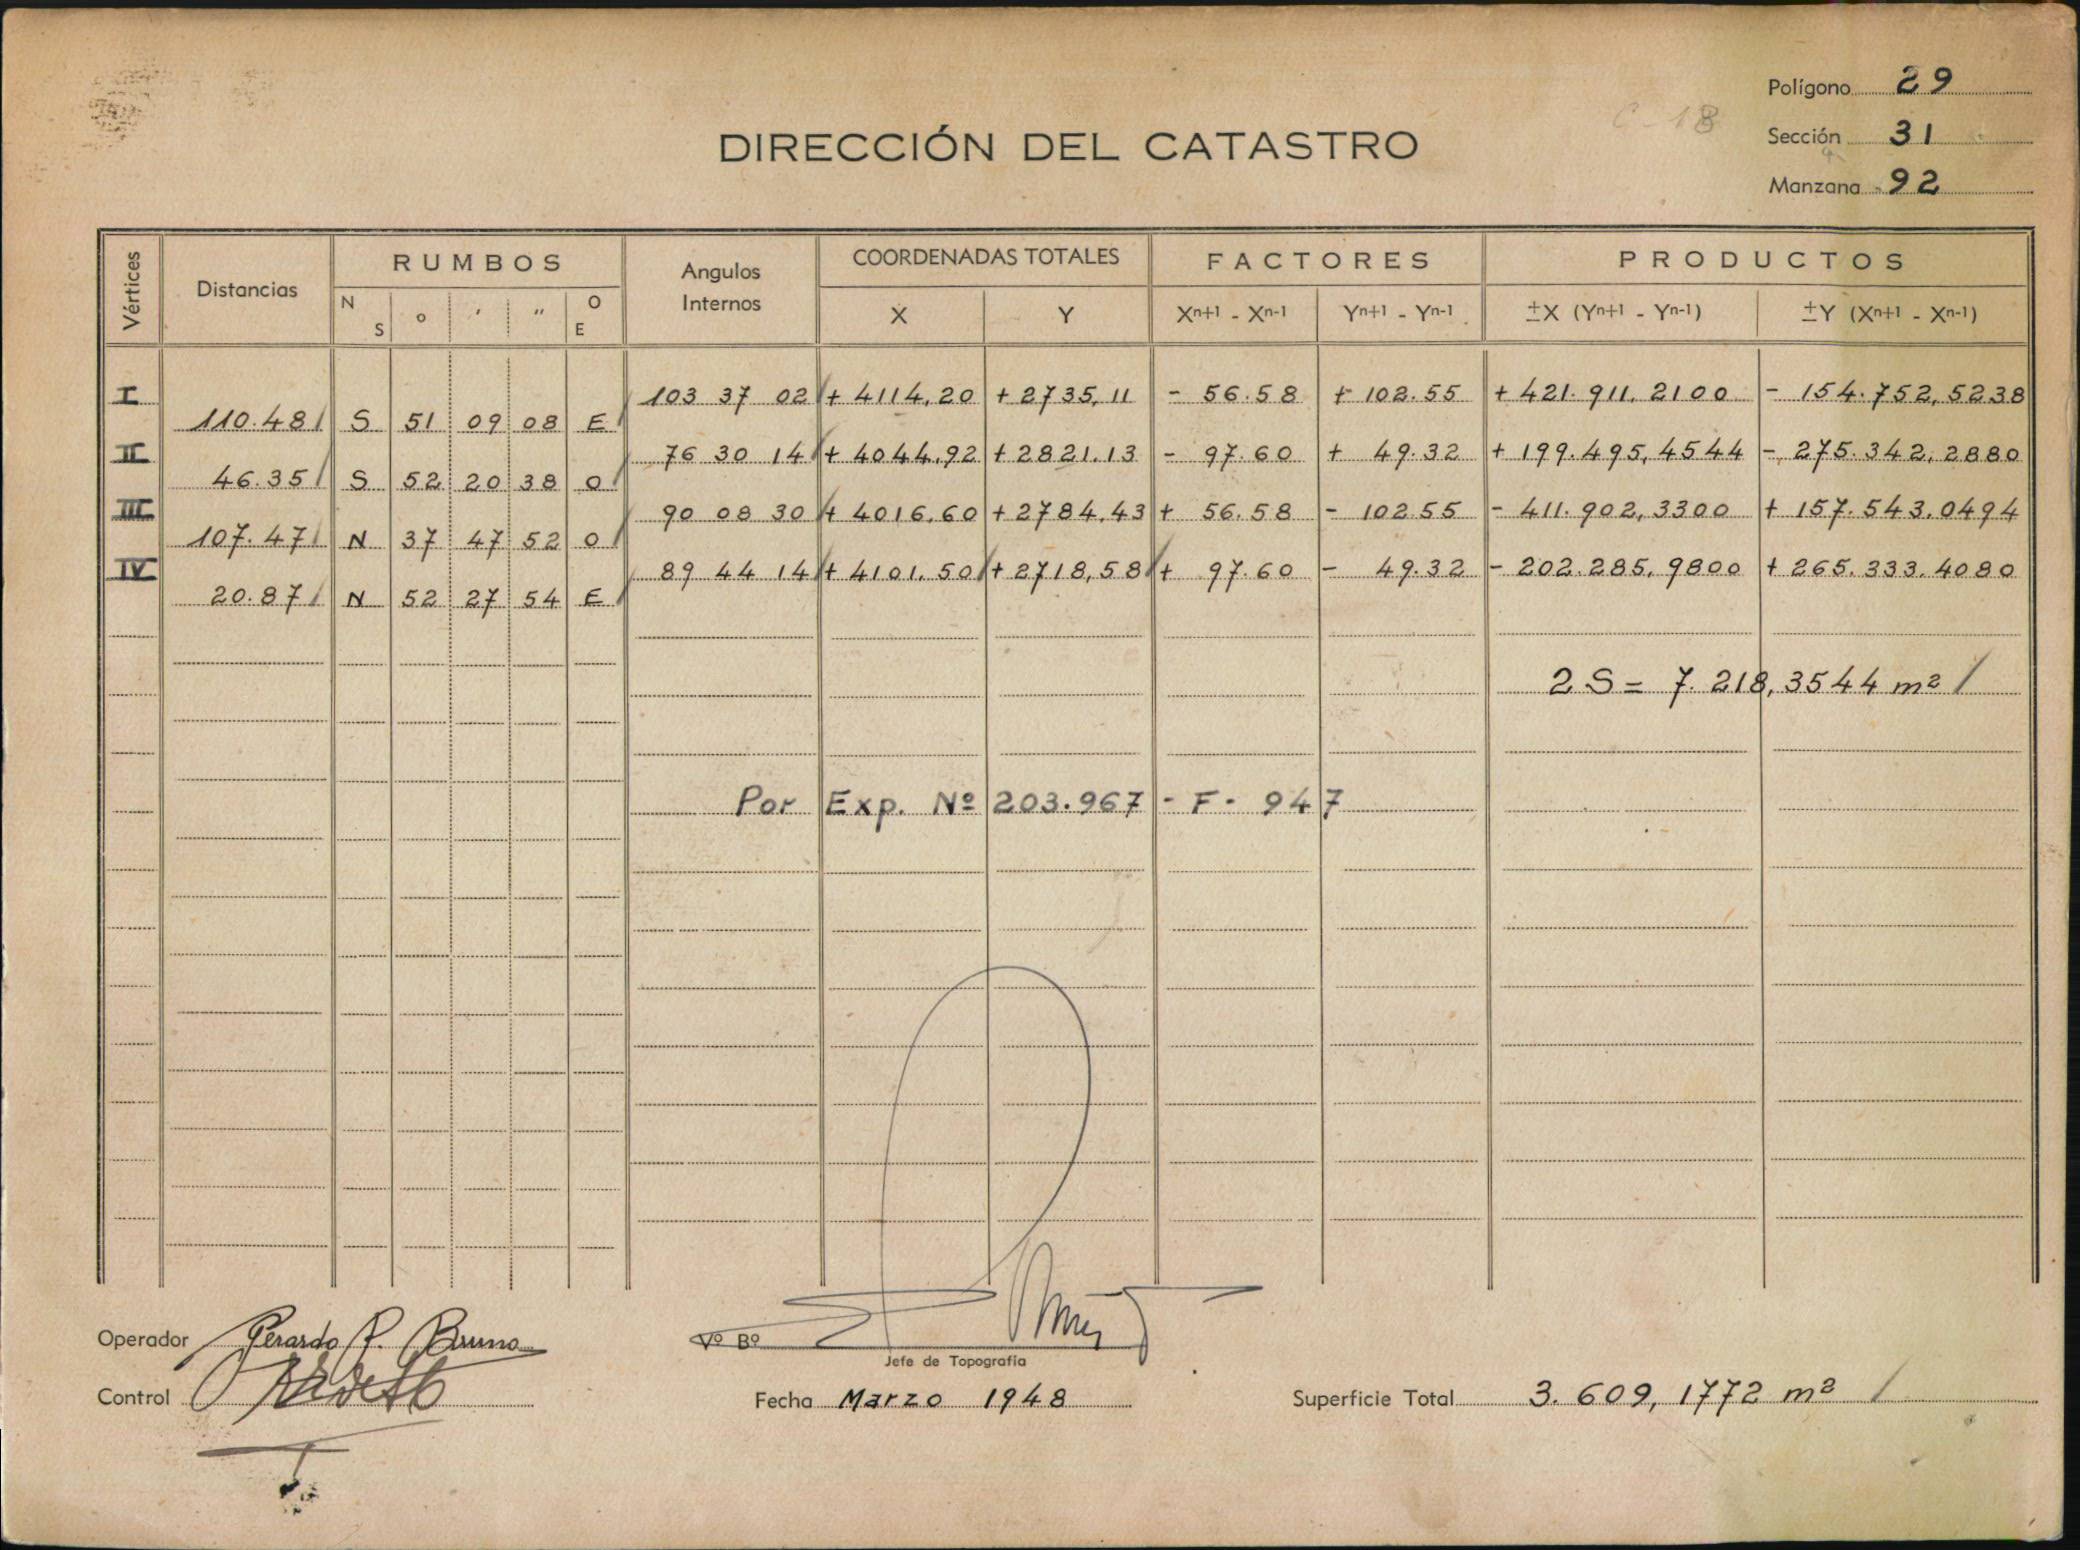 Polígono 29
C-18
DIRECCIÓN DEL CATASTRO
Sección 31
Manzana 92
Vértices Distancias RUMBOS Angulos Internos COORDENADAS TOTALES FACTORES PRODUCTOS
N S o ' " O E X Y Xn+1 - Xn-1 Yn+1 - Yn-1 ±X (Yn+1 - Yn-1) ±Y (Xn+1 - Xn-1)
I 103 37 02 + 4114,20 + 2735,11 - 56.58 + 102.55 + 421.911,2100 - 154.752,5238
110.48 S 51 09 08 E
II 76 30 14 + 4044,92 + 2821.13 - 97.60 + 49.32 + 199.495,4544 - 275.342,2880
46.35 S 52 20 38 O
III 90 08 30 + 4016,60 + 2784,43 + 56.58 - 102.55 - 411.902,3300 + 157.543.0494
107.47 N 37 47 52 O
IV 89 44 14 + 4101,50 + 2718,58 + 97.60 - 49.32 - 202.285,9800 + 265.333.4080
20.87 N 52 27 54 E
2 S = 7.218,3544 m²
Por Exp. Nº 203.967 - F - 947
Operador Gerardo P. Bruno
Vº Bº
Jefe de Topografía
Control
Fecha Marzo 1948
Superficie Total 3.609,1772 m²